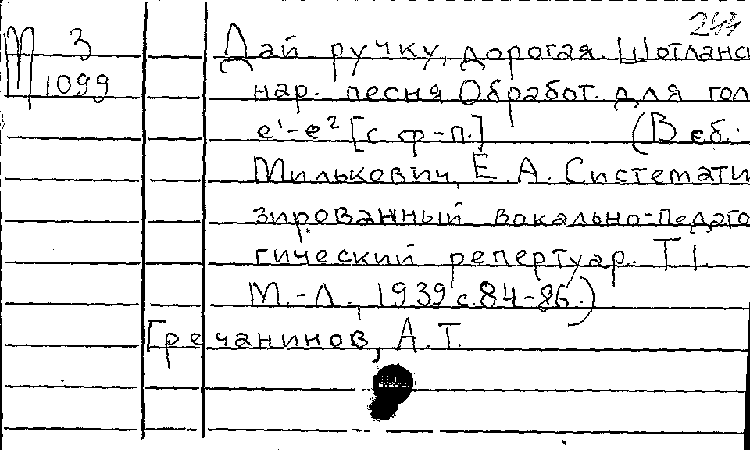 М 3 Дай ручку, дорогая. Шотланс
1099 нар. песня Обработ. для гол
е¹-е² [с ф-п.] (В сб.:
Милькович, Е. А. Системати
зированный вокально-педаго
гический репертуар. Т I.
М.-Л., 1939 с. 84-86.)
Гречанинов, А. Т.